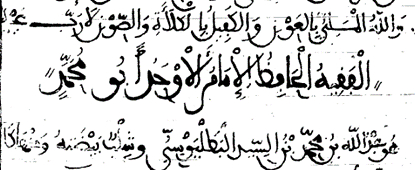 والله الملي بالعون والكفيل بالكلاءة والصون لا رب غيره
"الفقيه الحافظ الإمام الأوحد أبو محمد"
هو عبد الله بن محمد بن السيد البطليوسي وشلب بيضته ومنها